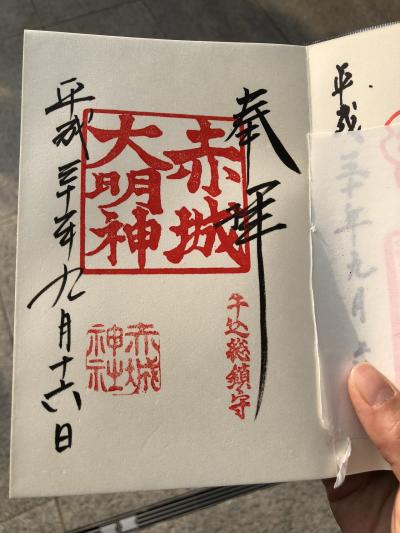 奉拝
赤城
大明神
牛込総鎮守
赤城
神社
平成三十年九月十六日
平成
三十年九月